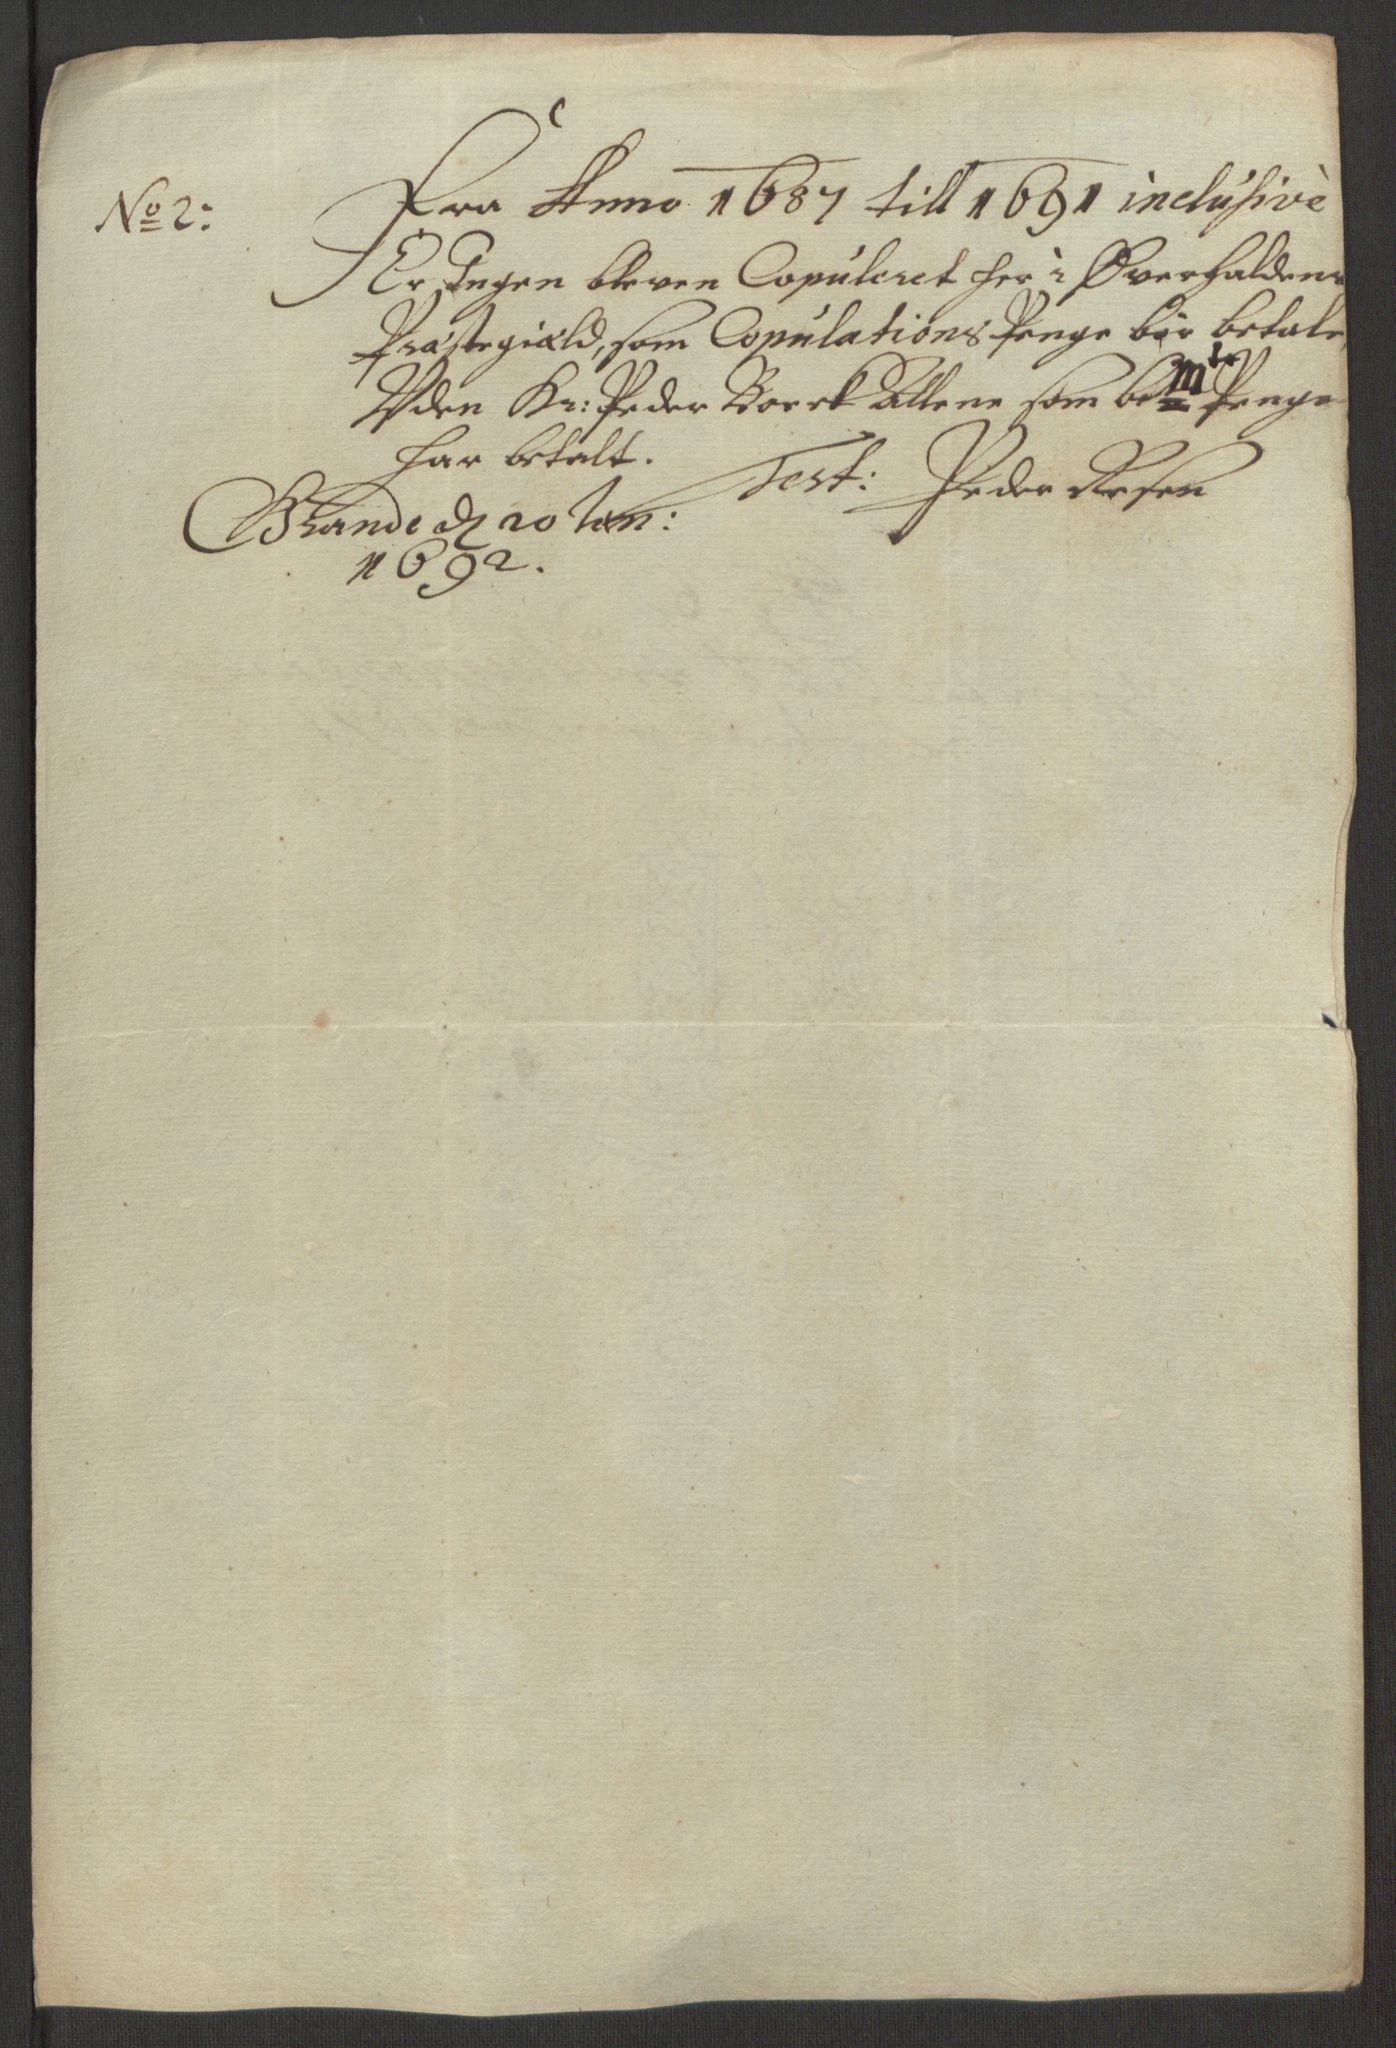 No 2:
Fra Anno 1687 till 1691 inclusivè
Er Ingen bleven Copuleret her i Øverhaldens
Præstegiæld, som Copulations Penge bør betale,
Uden Hr: Peder Borch Allene som be^mte Penge
har betalt.
Test: Peder Resen
Rande d 20 Jan:
1692.